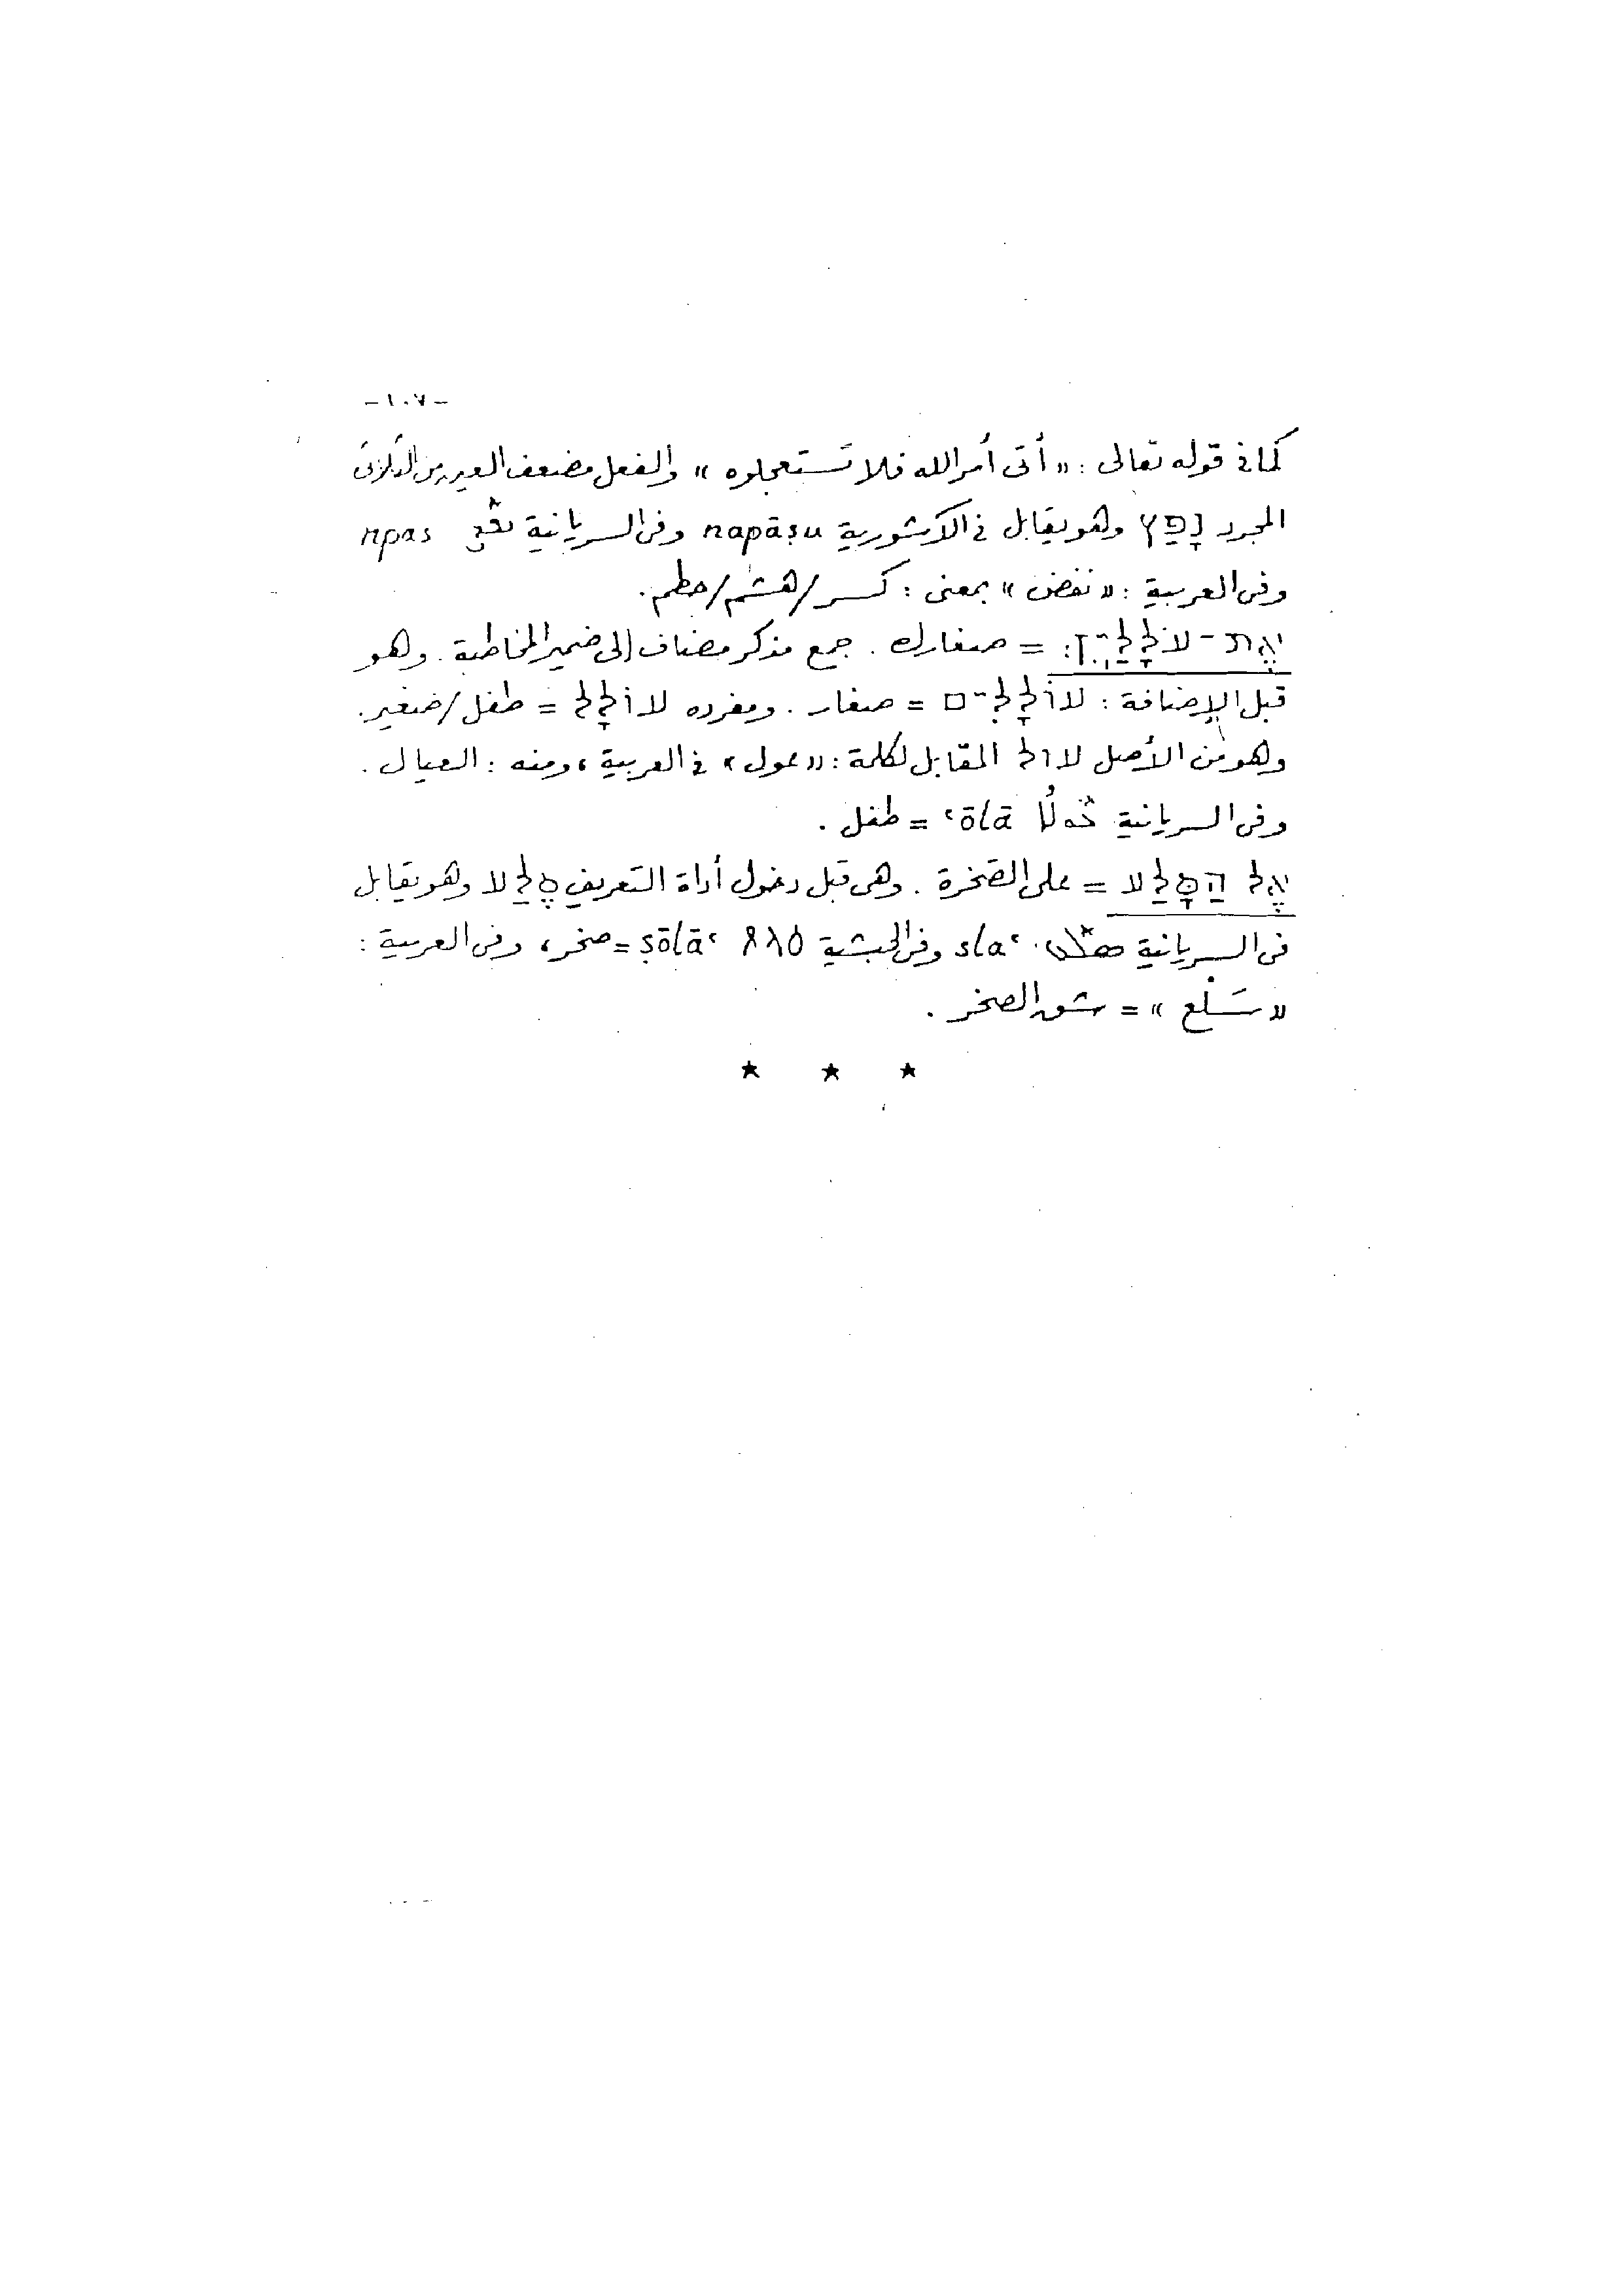 -١٠٧-
كما فى قوله تعالى : «أتى أمر الله فلا تستعجلوه» والفعل مضعف العين من الثلاثى
المجرد נָפַץ وهو يقابل فى الآشورية napāṣu وفى السريانية ܢܦܨ npaṣ
وفى العربية : «نفض» بمعنى : كسر/هشم/حطم.
אֶת-עֹלָלַיִךְ: = صغارك . جمع مذكر مضاف إلى ضمير المخاطبة . وهو
قبل الإضافة : עֹלָלִים = صغار . ومفرده עֹלָל = طفل/صغير.
وهو من الأصل עול المقابل لكلمة : «عول» فى العربية ، ومنه : العيال .
وفى السريانية ܥܘܠܐ ʿōlā = طفل .
אֶל הַסָּלַע = على الصخرة . وهى قبل دخول أداة التعريف סֶלַע وهو يقابل
فى السريانية slaʿ وفى الحبشية ጸላዕ ṣōlāʿ = صخر ، وفى العربية :
«سَلْع» = شق الصخر .
★ ★ ★